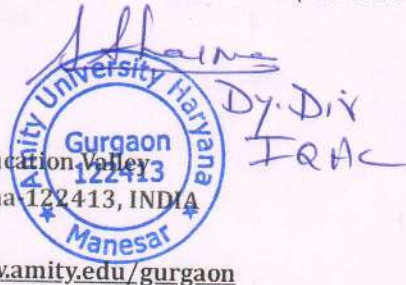 Amity University Haryana
Gurgaon
122413
Manesar
Dy. Dir
IQAC
ucation Valley
na-122413, INDIA
w.amity.edu/gurgaon